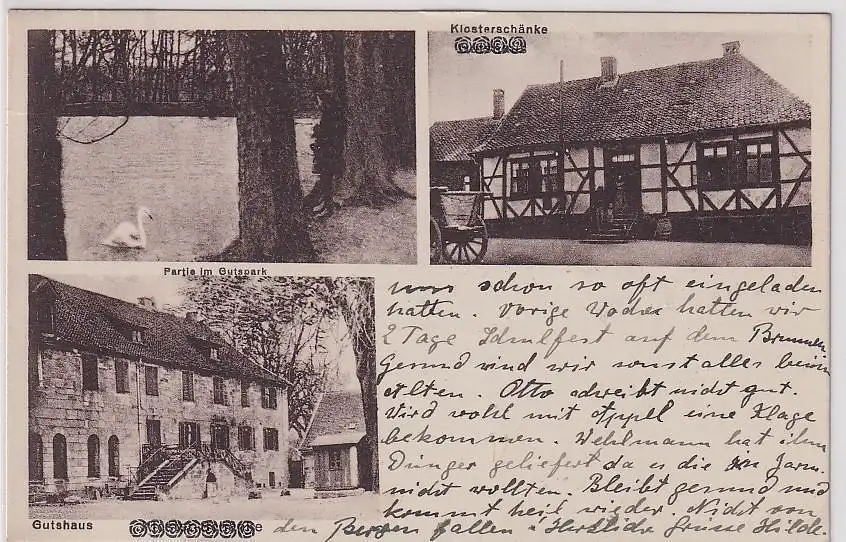 Klosterschänke
Partie im Gutspark
Gutshaus
uns schon so oft eingeladen
hatten. Vorige Woche hatten wir
2 Tage Schulfest auf dem Brunnen
Gesund sind wir sonst alles beim
Alten. Otto schreibt nicht gut.
Wird wohl mit Appel eine Klage
bekommen. Wehlmann hat ihm
Dünger geliefert da es die Jarm.
nicht wollten. Bleibt gesund und
kommt heil wieder. Nicht von
den Bergen fallen! Herzliche Grüsse Hilde.